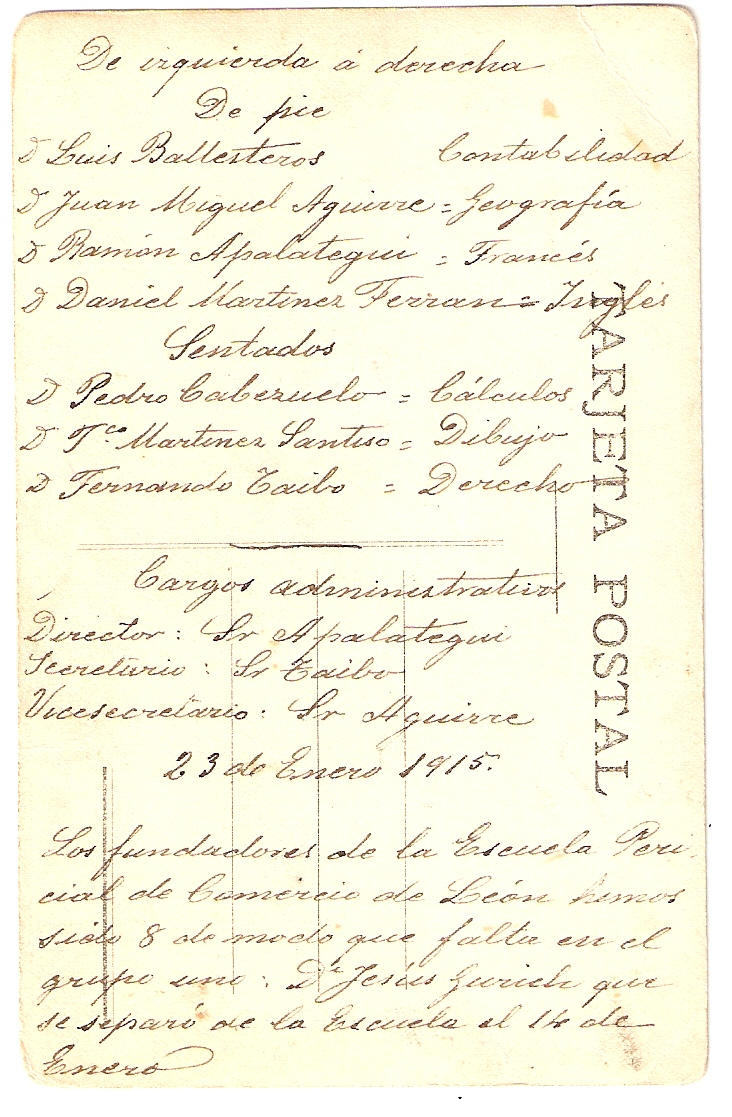 De izquierda á derecha
De pie
D Luis Ballesteros Contabilidad
D Juan Miguel Aguirre = Geografía
D Ramón Apalategui = Francés
D Daniel Martinez Ferran = Inglés
Sentados
D Pedro Cabezuelo = Cálculos
D Fco Martinez Santiso = Dibujo
D Fernando Taibo = Derecho
Cargos administrativos
Director: Sr Apalategui
Secretario: Sr Taibo
Vicesecretario: Sr Aguirre
23 de Enero 1915.
Los fundadores de la Escuela Peri-
cial de Comercio de León hemos
sido 8 de modo que falta en el
grupo uno: Jesús que
se separó de la Escuela el 14 de
Enero
TARJETA POSTAL